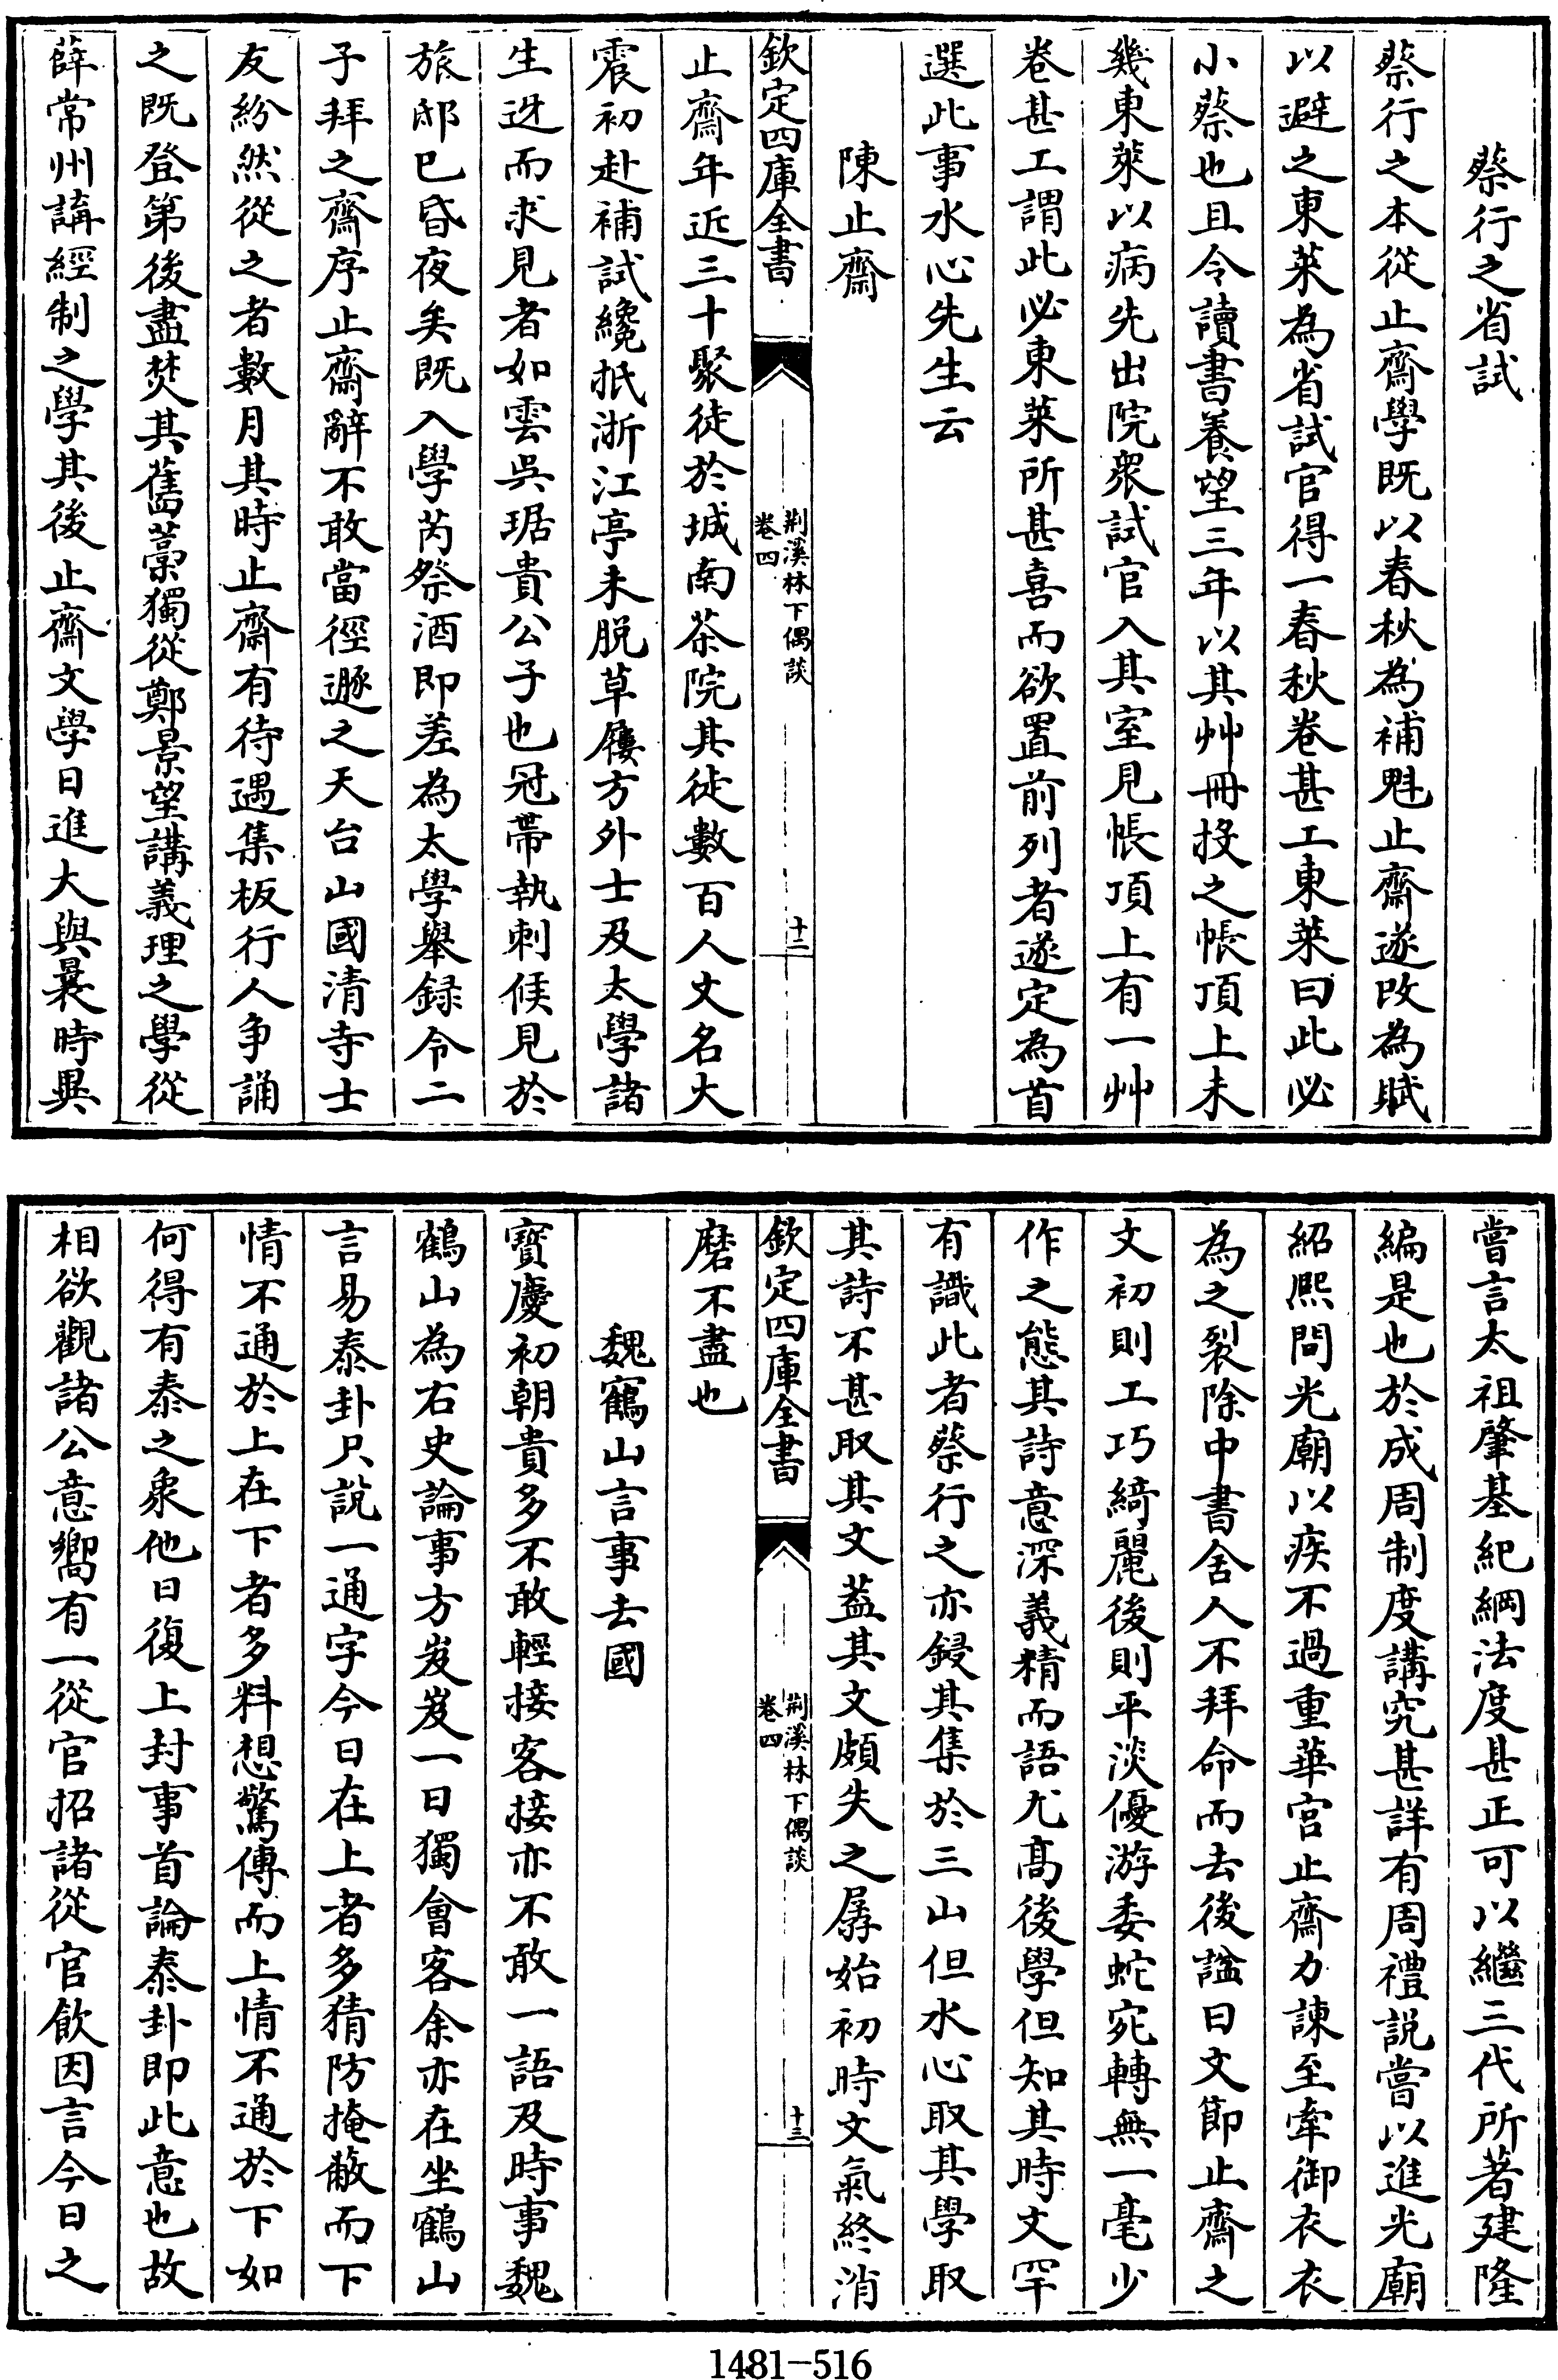 蔡行之省試
蔡行之本從止齋學既以春秋為補魁止齋遂改為賦
以避之東萊為省試官得一春秋卷甚工東萊曰此必
小蔡也且令讀書養望三年以其艸冊投之帳頂上未
幾東萊以病先出院衆試官入其室見帳頂上有一艸
卷甚工謂此必東萊所甚喜而欲置前列者遂定為首
選此事水心先生云
陳止齋
欽定四庫全書
荆溪林下偶談
卷四
十二
止齋年近三十聚徒於城南茶院其徒數百人文名大
震初赴補試纔抵浙江亭未脱草屨方外士及太學諸
生迓而求見者如雲吳琚貴公子也冠帶執刺候見於
旅邸已昏夜矣既入學芮祭酒即差為太學舉録令二
子拜之齋序止齋辭不敢當徑遯之天台山國清寺士
友紛然從之者數月其時止齋有待遇集板行人争誦
之既登第後盡焚其舊藁獨從鄭景望講義理之學從
薛常州講經制之學其後止齋文學日進大與曩時異
嘗言太祖肇基紀綱法度甚正可以繼三代所著建隆
編是也於成周制度講究甚詳有周禮説嘗以進光廟
紹熙間光廟以疾不過重華宫止齋力諫至牽御衣衣
為之裂除中書舍人不拜命而去後諡曰文節止齋之
文初則工巧綺麗後則平淡優游委蛇宛轉無一毫少
作之態其詩意深義精而語尤髙後學但知其時文罕
有識此者蔡行之亦鋟其集於三山但水心取其學取
其詩不甚取其文葢其文頗失之孱始初時文氣終消
欽定四庫全書
荆溪林下偶談
卷四
十三
磨不盡也
魏鶴山言事去國
寳慶初朝貴多不敢輕接客接亦不敢一語及時事魏
鶴山為右史論事方岌岌一日獨會客余亦在坐鶴山
言易泰卦只説一通字今日在上者多猜防掩蔽而下
情不通於上在下者多料想驚傳而上情不通於下如
何得有泰之象他日復上封事首論泰卦即此意也故
相欲觀諸公意嚮有一從官招諸從官飲因言今日之
1481-516